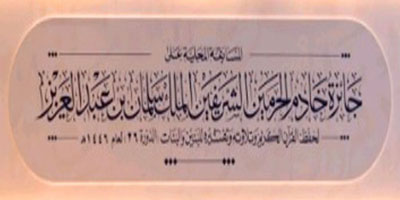 للمسابقة المحلية على
جائزة خادم الحرمين الشريفين الملك سلمان بن عبد العزيز
لحفظ القرآن الكريم وتلاوته وتفسيره للبنين والبنات الدورة (٢٦) لعام ١٤٤٦هـ